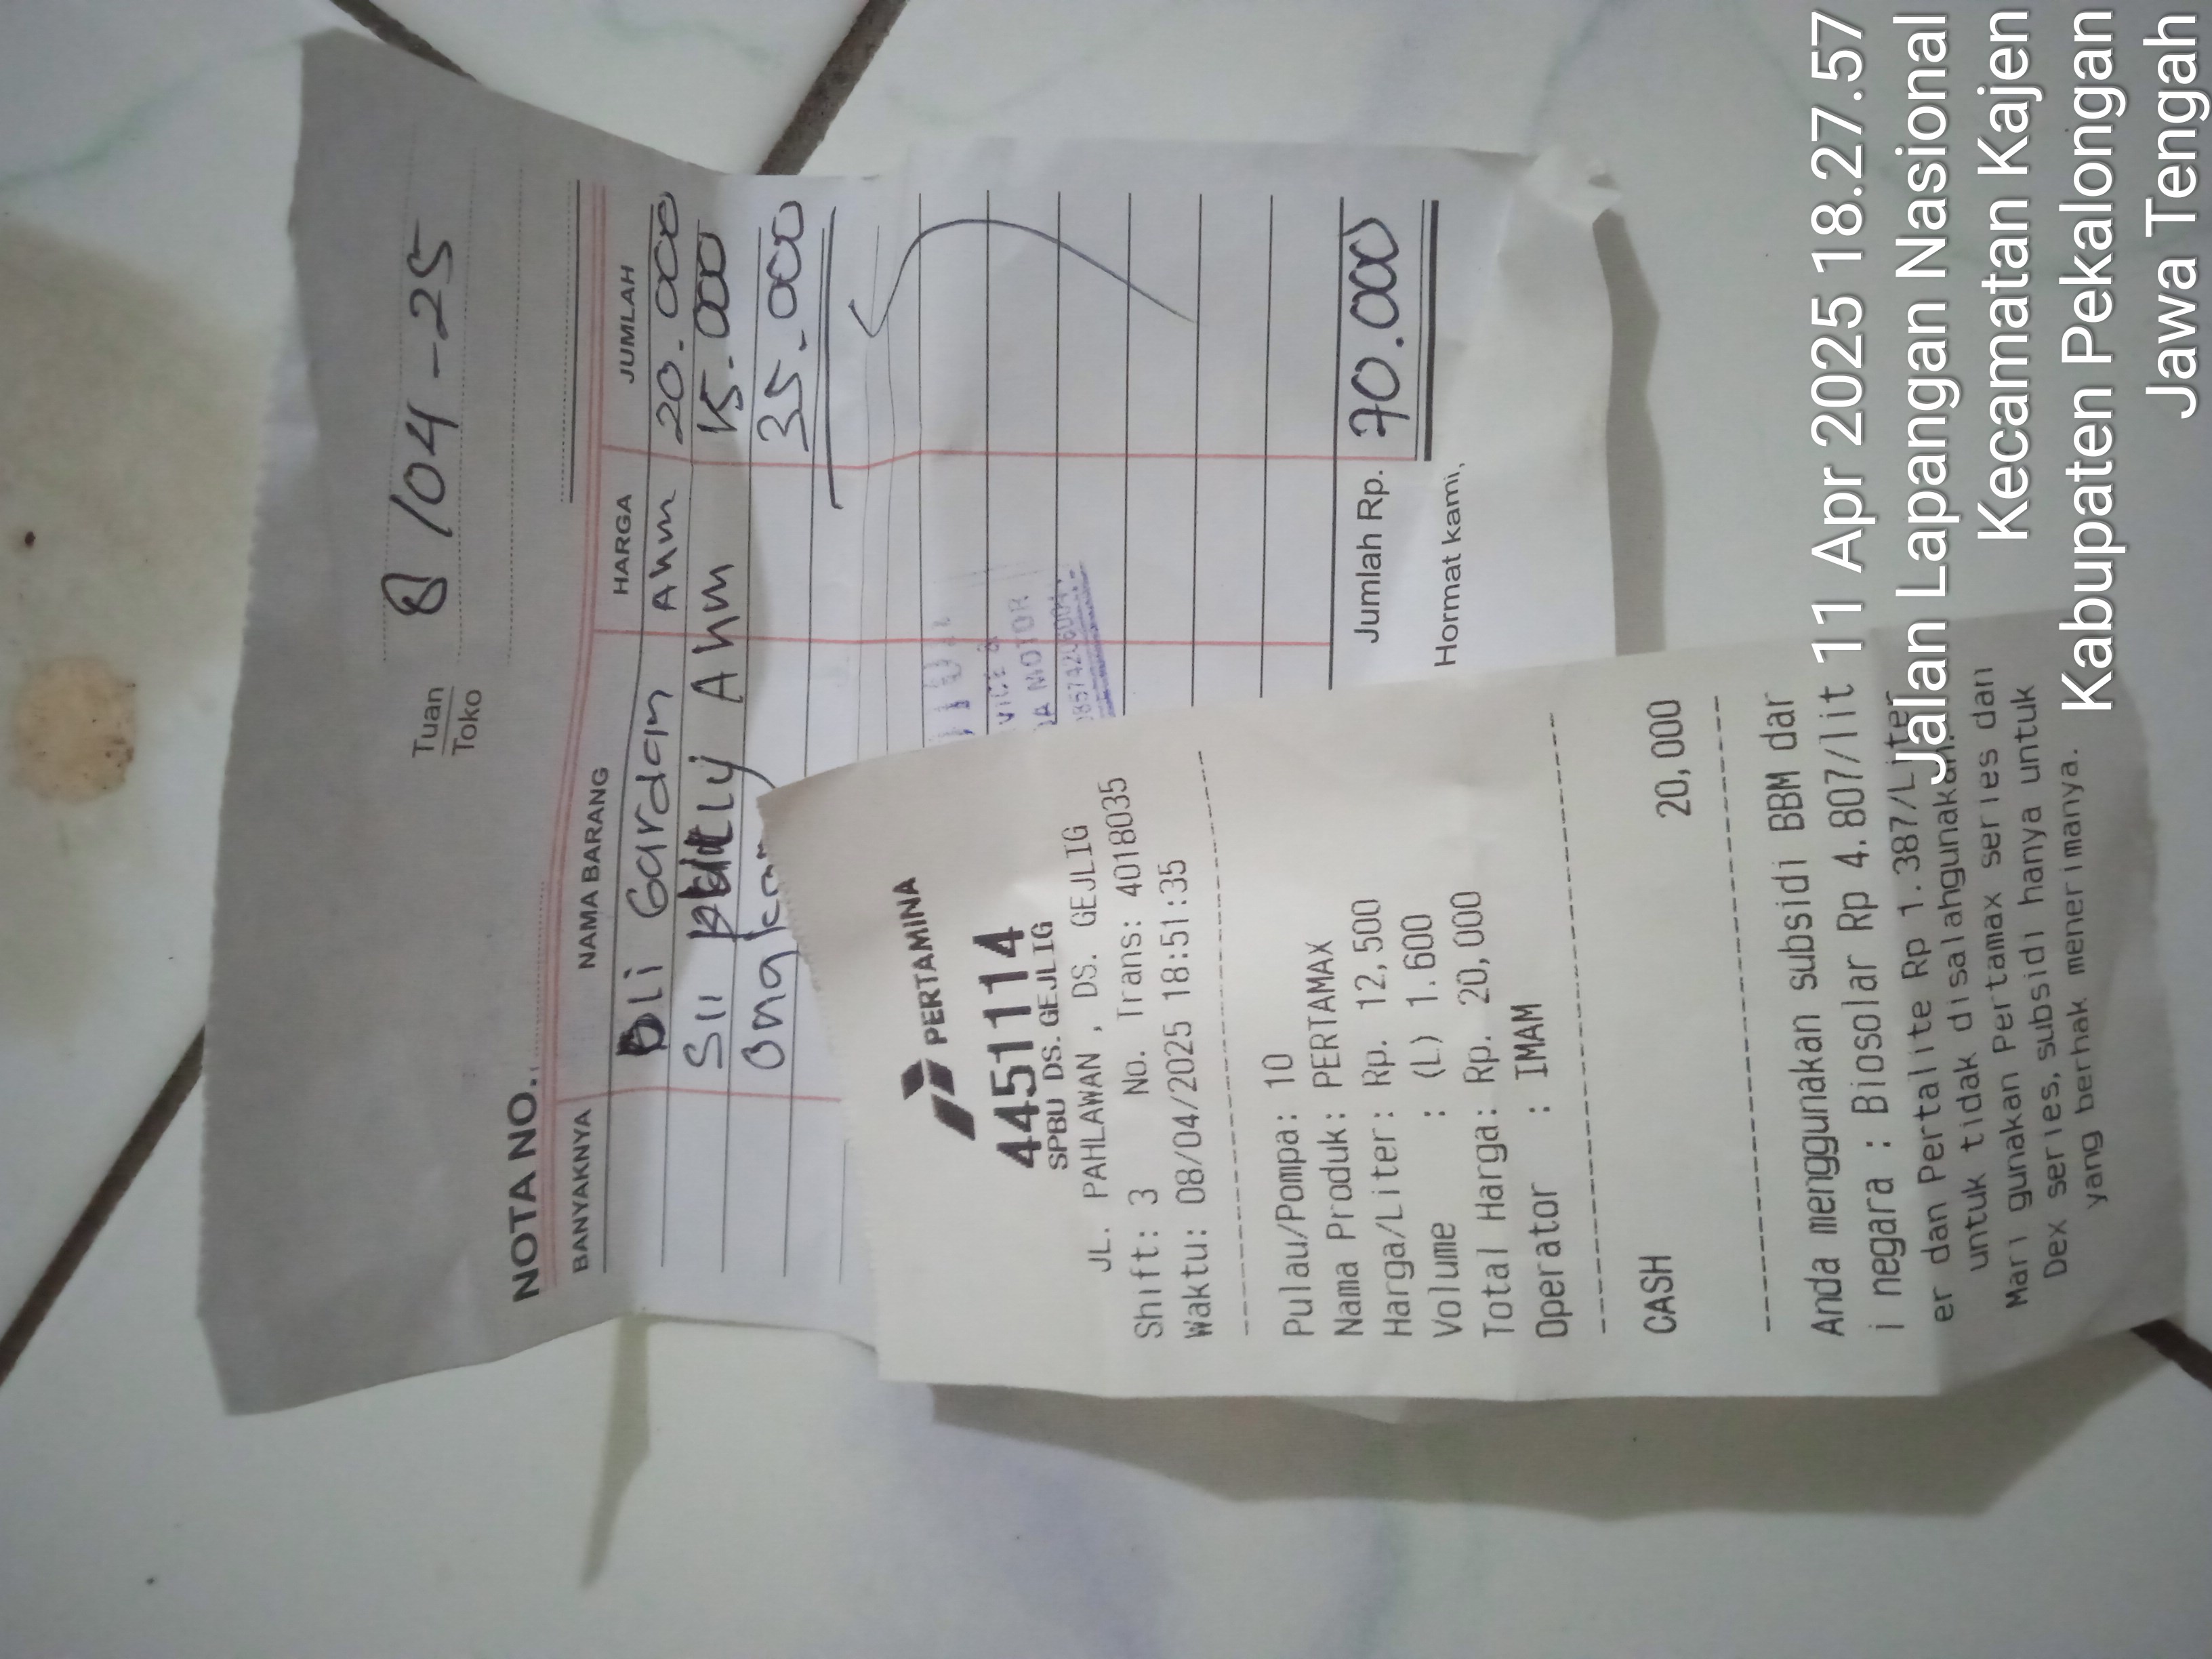 Tuan
Toko
8/04-25
NOTA NO.
BANYAKNYA NAMA BARANG HARGA JUMLAH
Oli Gardan Ahm 20.000
Sil Ahm 15.000
35.000
VICE &
MOTOR
Jumlah Rp. 70.000
Hormat kami,
PERTAMINA
4451114
SPBU DS. GEJLIG
JL. PAHLAWAN , DS. GEJLIG
Shift: 3 No. Trans: 4018035
Waktu: 08/04/2025 18:51:35
Pulau/Pompa: 10
Nama Produk: PERTAMAX
Harga/Liter: Rp. 12,500
Volume : (L) 1.600
Total Harga: Rp. 20,000
Operator : IMAM
CASH 20,000
Anda menggunakan subsidi BBM dar
i negara : Biosolar Rp 4.807/lit
er dan Pertalite Rp 1.387/Liter
untuk tidak disalahgunakan.
Mari gunakan Pertamax series dan
Dex series, subsidi hanya untuk
yang berhak menerimanya.
11 Apr 2025 18.27.57
Jalan Lapangan Nasional
Kecamatan Kajen
Kabupaten Pekalongan
Jawa Tengah